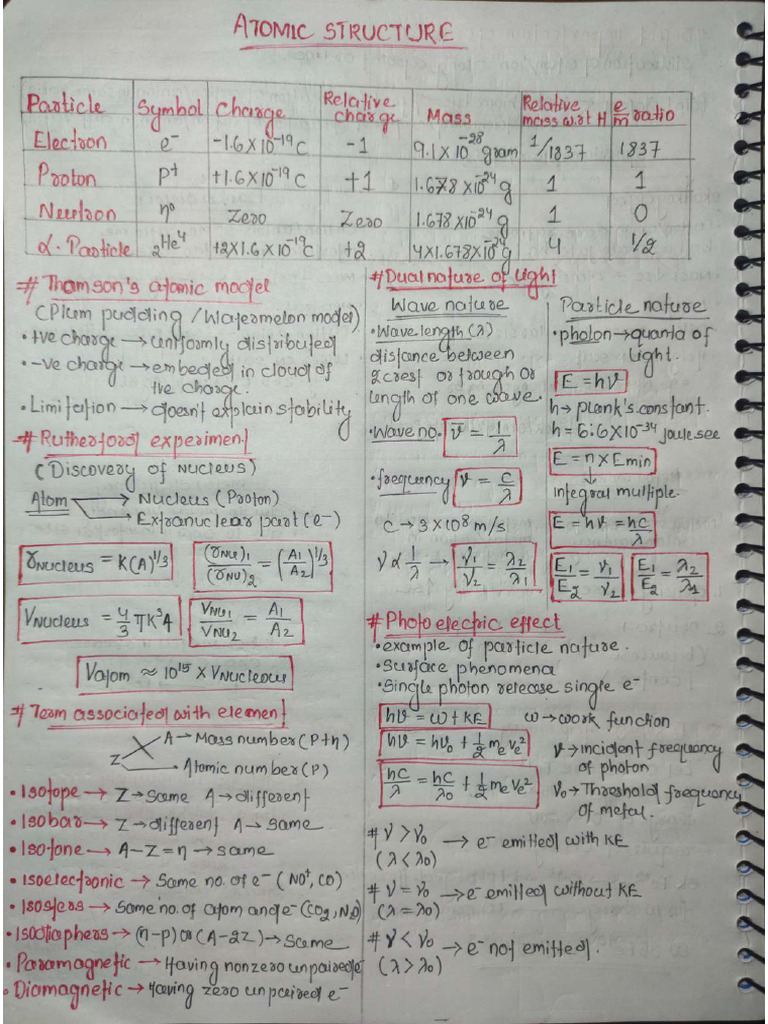 ATOMIC STRUCTURE
Particle Symbol Charge Relative charge Mass Relative mass w.rt H e/m ratio
Electron e⁻ -1.6×10⁻¹⁹C -1 9.1×10⁻²⁸ gram 1/1837 1837
Proton P⁺ +1.6×10⁻¹⁹C +1 1.678×10⁻²⁴g 1 1
Neutron n⁰ Zero Zero 1.678×10⁻²⁴g 1 0
α·Particle ₂He⁴ +2×1.6×10⁻¹⁹C +2 4×1.678×10⁻²⁴g 4 1/2
# Thamson's atomic model
(Plum pudding /Watermelon model)
• +ve charge → uniformly distributed
• -ve charge → embeded in cloud of
+ve charge.
• Limitation → doesn't explain stability
# Rutherford experiment
(Discovery of Nucleus)
Atom → Nucleus (Proton)
→ Extranuclear part (e⁻)
r_Nucleus = K(A)^1/3 (r_Nu)₁/(r_Nu)₂ = (A₁/A₂)^1/3
V_Nucleus = 4/3 πK³A V_Nu₁/V_Nu₂ = A₁/A₂
Vatom ≈ 10¹⁵ × V_Nucleous
# Term associated with element
A → Mass number (P+n)
Z → Atomic number (P)
• Isotope → Z → Same A → different
• Isobar → Z → different A → same
• Isotone → A-Z=n → same
• Isoelectronic → Same no. of e⁻ (NO⁺, CO)
• Isosters → Same no. of atom and e⁻ (CO₂, N₂O)
• Isodiaphers → (n-p) or (A-2Z) → Same
• Paramagnetic → Having nonzero unpaired e⁻
• Diamagnetic → Having zero unpaired e⁻
# Dual nature of Light
Wave nature
• Wave length (λ)
distance between
2 crest or trough or
length of one wave.
• Wave no. ν̅ = 1/λ
• frequency ν = C/λ
C → 3×10⁸ m/s
ν ∝ 1/λ → ν₁/ν₂ = λ₂/λ₁
Particle nature
• photon → quanta of
Light.
E = hν
h → plank's constant.
h = 6.6×10⁻³⁴ joule sec
E = n × Emin
↓
integral multiple.
E = hν = hc/λ
E₁/E₂ = ν₁/ν₂ E₁/E₂ = λ₂/λ₁
# Photo electric effect
• example of particle nature.
• surface phenomena
• Single photon release single e⁻
hν = ω + KE ω → work function
hν = hν₀ + 1/2 mₑvₑ² ν → incident frequency
of photon
hc/λ = hc/λ₀ + 1/2 mₑvₑ² ν₀ → Threshold frequency
of metal.
# ν > ν₀ → e⁻ emitted with KE
(λ < λ₀)
# ν = ν₀ → e⁻ emitted without KE
(λ = λ₀)
# ν < ν₀ → e⁻ not emitted.
(λ > λ₀)